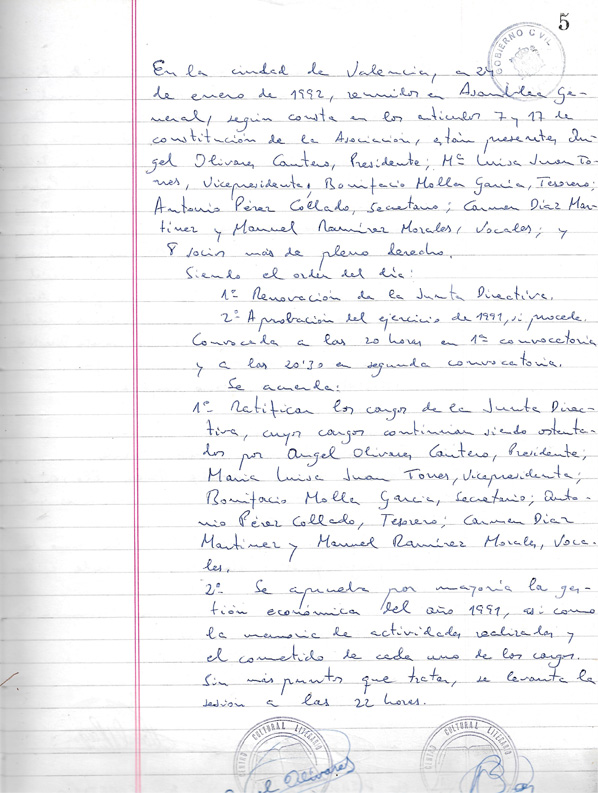 5
GOBIERNO CIVIL
En la ciudad de Valencia, a 24
de enero de 1992, reunidos en Asamblea Ge-
neral, según consta en los articulos 7 y 17 de
constitución de la Asociación, están presentes Án-
gel Olivares Cantero, Presidente; Mª Luisa Juan To-
rres, Vicepresidente; Bonifacio Molla García, Tesorero;
Antonio Pérez Collado, Secretario; Carmen Díaz Mar-
tínez y Manuel Ramírez Morales, Vocales; y
8 socios más de pleno derecho.
Siendo el orden del día:
1º Renovación de la Junta Directiva.
2º Aprobación del ejercicio de 1991, si procede.
Convocada a las 20 horas en 1ª convocatoria
y a las 20'30 en segunda convocatoria.
Se acuerda:
1º Ratificar los cargos de la Junta Direc-
tiva, cuyos cargos continuan siendo ostenta-
dos por Angel Olivares Cantero, Presidente;
María Luisa Juan Torres, Vicepresidenta;
Bonifacio Molla García, Secretario; Anto-
nio Pérez Collado, Tesorero; Carmen Díaz
Martínez y Manuel Ramírez Morales, Voca-
les.
2º Se aprueba por mayoría la ges-
tión económica del año 1991, así como
la memoria de actividades realizadas y
el cometido de cada uno de los cargos.
Sin más puntos que tratar, se levanta la
sesión a las 22 horas.
CENTRO CULTURAL LITERARIO
CENTRO CULTURAL LITERARIO
Olivares